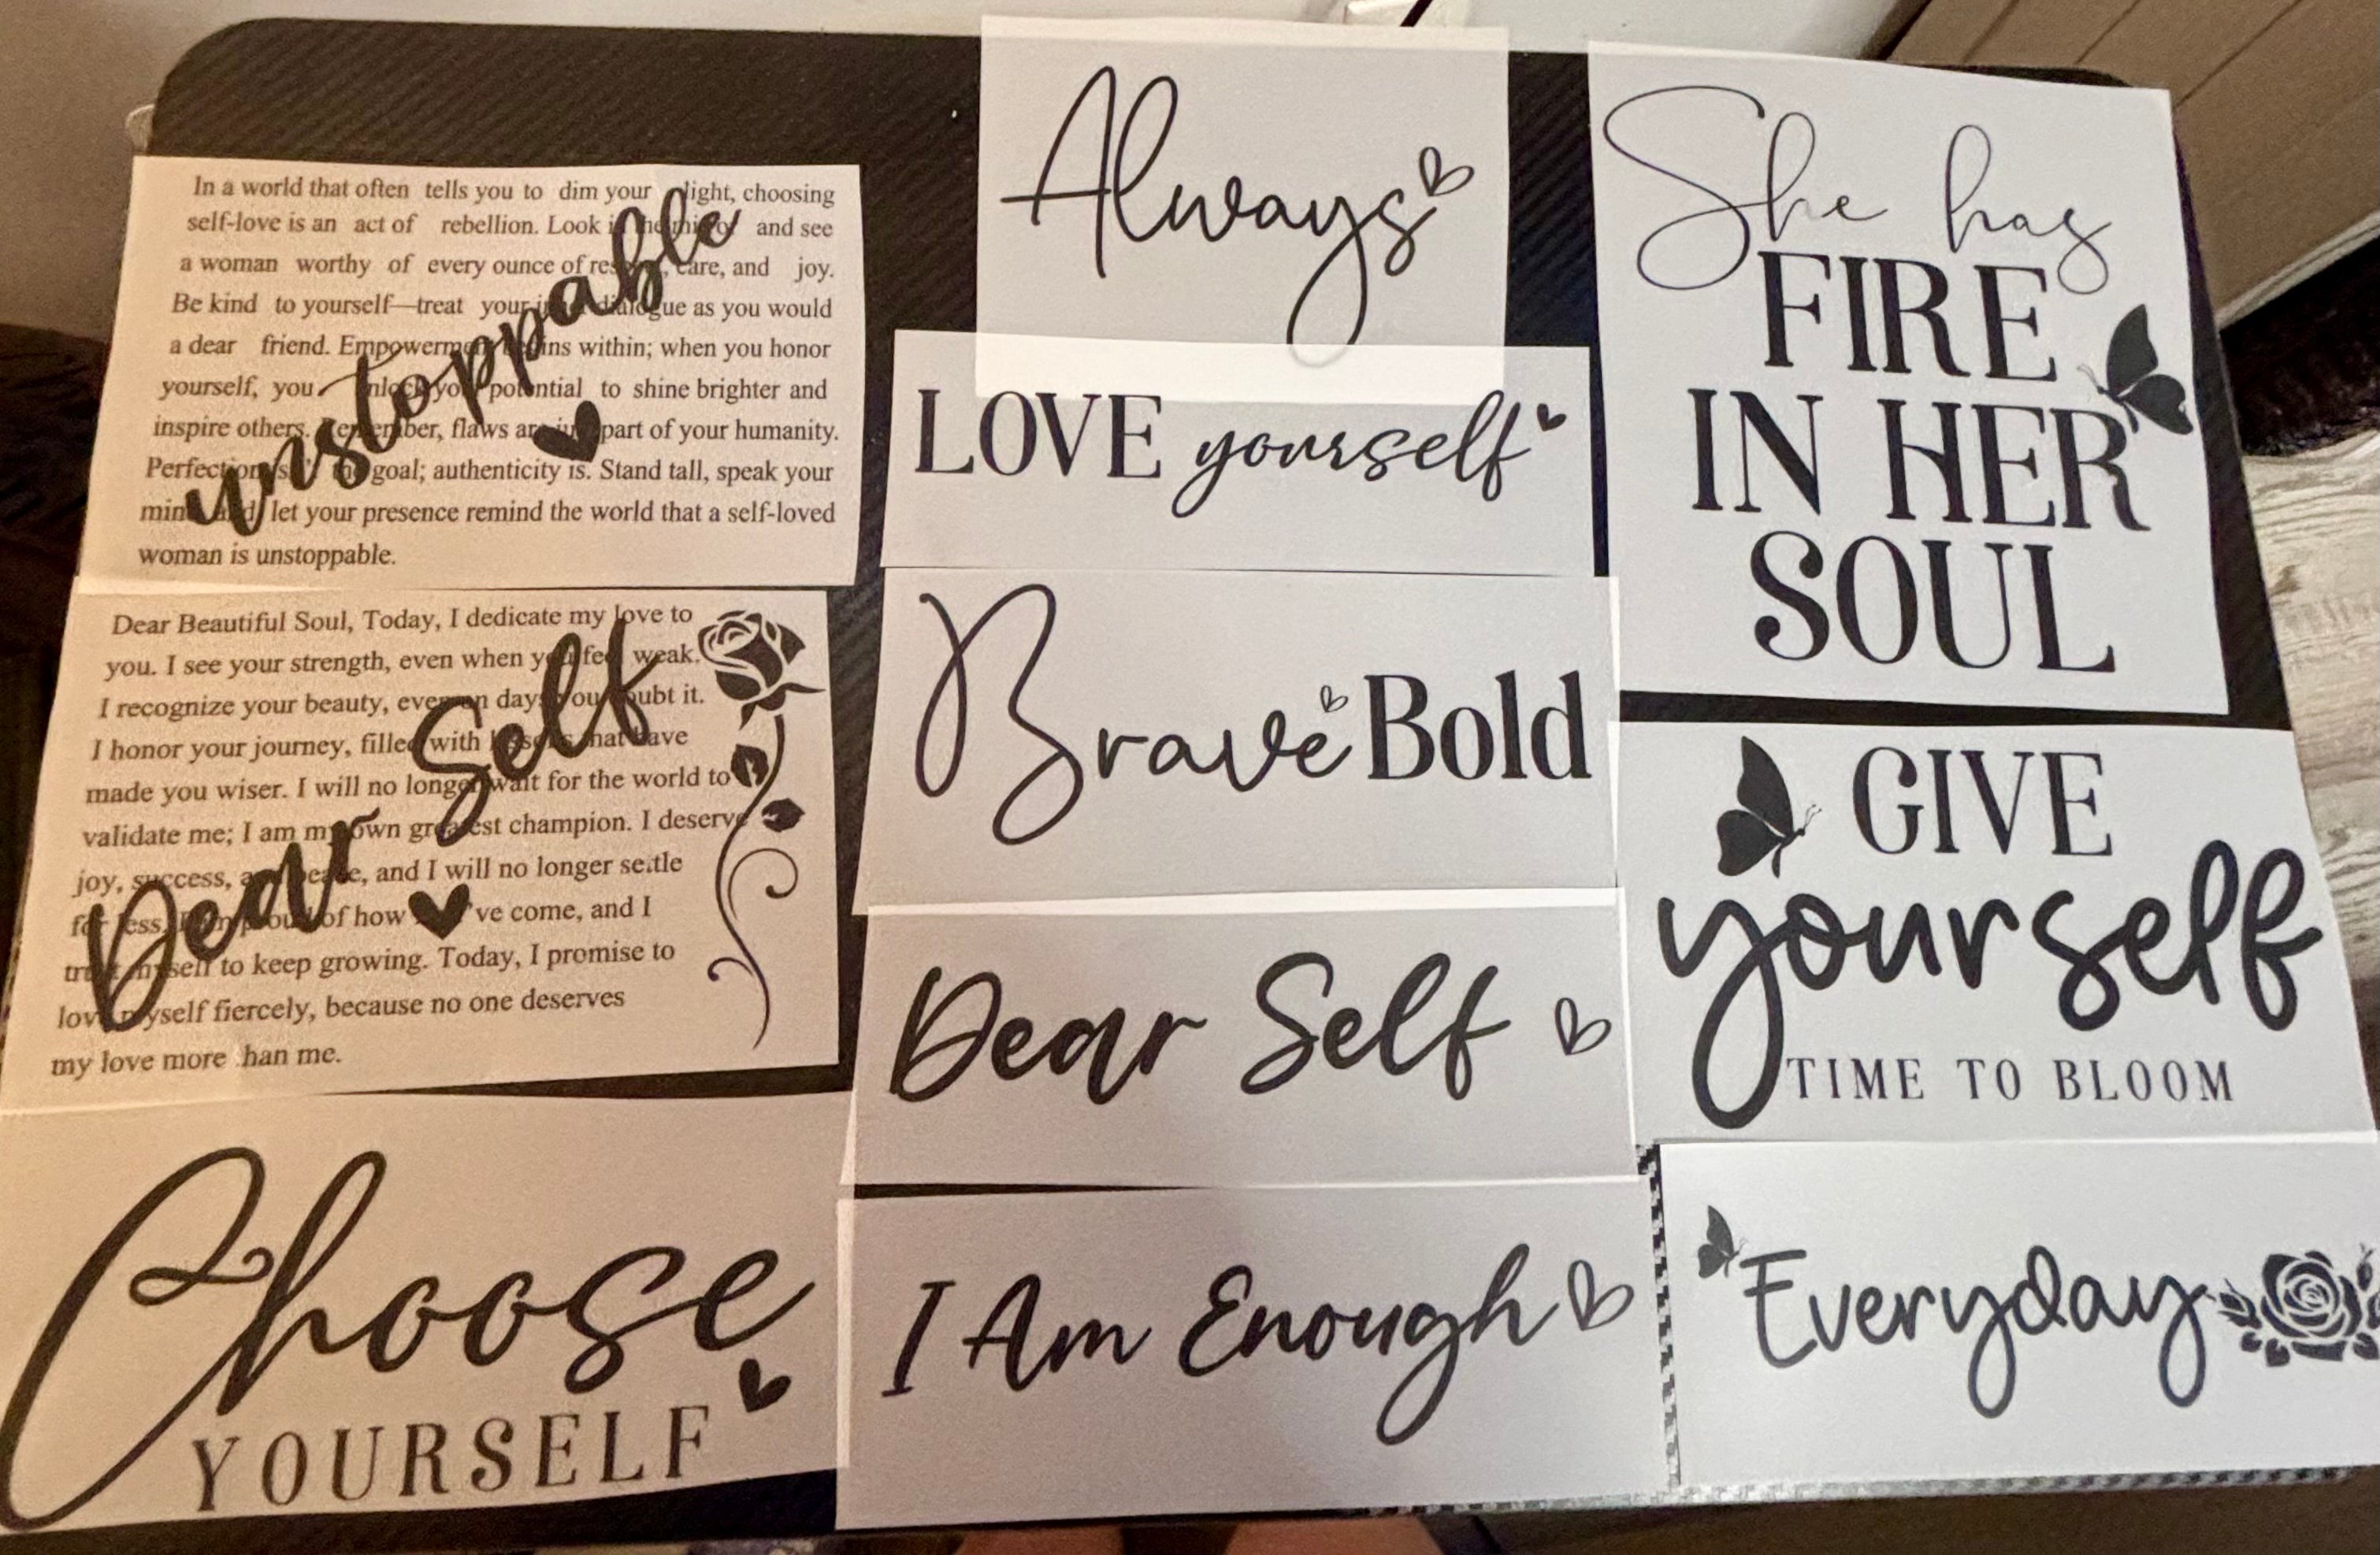 In a world that often tells you to dim your light, choosing
self-love is an act of rebellion. Look in the mirror and see
a woman worthy of every ounce of respect, care, and joy.
Be kind to yourself—treat your inner dialogue as you would
a dear friend. Empowerment begins within; when you honor
yourself, you unlock your potential to shine brighter and
inspire others. Remember, flaws are just part of your humanity.
Perfection isn't the goal; authenticity is. Stand tall, speak your
mind and let your presence remind the world that a self-loved
woman is unstoppable.
unstoppable
Dear Beautiful Soul, Today, I dedicate my love to
you. I see your strength, even when you feel weak.
I recognize your beauty, even on days you doubt it.
I honor your journey, filled with lessons that have
made you wiser. I will no longer wait for the world to
validate me; I am my own greatest champion. I deserve
joy, success, and peace, and I will no longer settle
for less. I am proud of how I've come, and I
trust myself to keep growing. Today, I promise to
love myself fiercely, because no one deserves
my love more than me.
Dear Self
Choose
YOURSELF
Always
LOVE yourself
Brave Bold
Dear Self
I Am Enough
She has
FIRE
IN HER
SOUL
GIVE
yourself
TIME TO BLOOM
Everyday